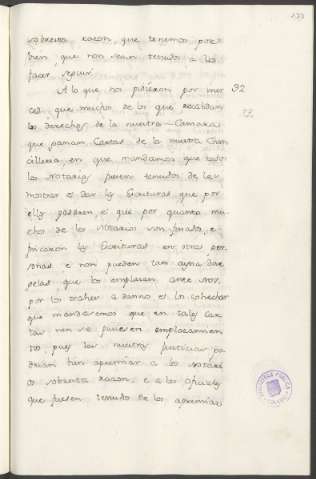 133
sobredta razon, que tenemos por
bien, que non sean tenudo a los
facer seguir.
A lo que nos pidieron por mer 92
ced, que muchos de los que recabdan
los derechos de la nuestra Camara
que ganan Cartas de la nuestra Chan
cilleria, en que mandamos que todos
los notarios fuesen tenudos de les
mostrar e dar las Escrituras que por
ellos pasaren, e que por quanto mu
chos de los Notarios son finados, e
fincaron las Escrituras en otras per
sonas, e non pueden tan ayna dar
pelas que los emplazan ante nos,
por los traher a danno e los cohechar
que mandasemos que en tales Car
tas non se pusiesen emplazamien
to, pues los nuestros justicias po
drian bien apremiar a los notarios
sobredta razon, e a los oficiales
que fuesen tenudo de los apremiar